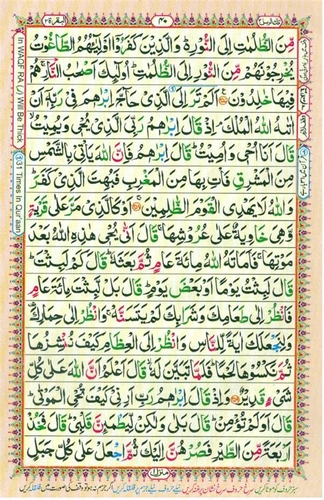 تلك الرسل ٣
٤٠
البقرة ٢
مِّنَ الظُّلُمٰتِ اِلَى النُّوْرِ ؕ وَالَّذِيْنَ كَفَرُوْۤا اَوْلِيٰٓـُٔهُمُ الطَّاغُوْتُ ۙ
يُخْرِجُوْنَهُمْ مِّنَ النُّوْرِ اِلَى الظُّلُمٰتِ ؕ اُولٰٓئِكَ اَصْحٰبُ النَّارِ ۚ هُمْ
فِيْهَا خٰلِدُوْنَ ۞ اَلَمْ تَرَ اِلَى الَّذِيْ حَآجَّ اِبْرٰهٖمَ فِيْ رَبِّهٖۤ اَنْ
اٰتٰىهُ اللّٰهُ الْمُلْكَ ۘ اِذْ قَالَ اِبْرٰهٖمُ رَبِّيَ الَّذِيْ يُحْيٖ وَيُمِيْتُ ۙ
قَالَ اَنَا اُحْيٖ وَاُمِيْتُ ؕ قَالَ اِبْرٰهٖمُ فَاِنَّ اللّٰهَ يَاْتِيْ بِالشَّمْسِ
مِنَ الْمَشْرِقِ فَاْتِ بِهَا مِنَ الْمَغْرِبِ فَبُهِتَ الَّذِيْ كَفَرَ ؕ
وَاللّٰهُ لَا يَهْدِي الْقَوْمَ الظّٰلِمِيْنَ ۞ اَوْ كَالَّذِيْ مَرَّ عَلٰى قَرْيَةٍ
وَّهِيَ خَاوِيَةٌ عَلٰى عُرُوْشِهَا ۚ قَالَ اَنّٰى يُحْيٖ هٰذِهِ اللّٰهُ بَعْدَ
مَوْتِهَا ۚ فَاَمَاتَهُ اللّٰهُ مِائَةَ عَامٍ ثُمَّ بَعَثَهٗ ؕ قَالَ كَمْ لَبِثْتَ ؕ
قَالَ لَبِثْتُ يَوْمًا اَوْ بَعْضَ يَوْمٍ ؕ قَالَ بَلْ لَّبِثْتَ مِائَةَ عَامٍ
فَانْظُرْ اِلٰى طَعَامِكَ وَشَرَابِكَ لَمْ يَتَسَنَّهْ ۚ وَانْظُرْ اِلٰى حِمَارِكَ
وَلِنَجْعَلَكَ اٰيَةً لِّلنَّاسِ وَانْظُرْ اِلَى الْعِظَامِ كَيْفَ نُنْشِزُهَا
ثُمَّ نَكْسُوْهَا لَحْمًا ؕ فَلَمَّا تَبَيَّنَ لَهٗ ۙ قَالَ اَعْلَمُ اَنَّ اللّٰهَ عَلٰى كُلِّ
شَيْءٍ قَدِيْرٌ ۞ وَاِذْ قَالَ اِبْرٰهٖمُ رَبِّ اَرِنِيْ كَيْفَ تُحْيِ الْمَوْتٰى ؕ
قَالَ اَوَلَمْ تُؤْمِنْ ؕ قَالَ بَلٰى وَلٰكِنْ لِّيَطْمَئِنَّ قَلْبِيْ ؕ قَالَ فَخُذْ
اَرْبَعَةً مِّنَ الطَّيْرِ فَصُرْهُنَّ اِلَيْكَ ثُمَّ اجْعَلْ عَلٰى كُلِّ جَبَلٍ
منزل ١
In WAQF RA (ر) Will Be Thick
(13 Times In Qur'aan)